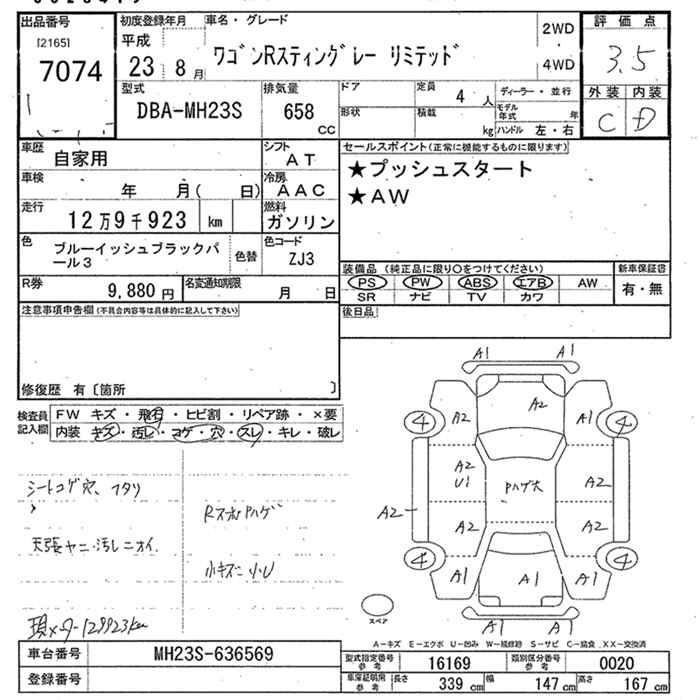 出品番号
[2165]
7074
初度登録年月
平成
23年8月
車名・グレード
ワゴンRスティングレー リミテッド
2WD
4WD
評価点
3.5
外装 内装
C D
型式
DBA-MH23S
排気量
658
CC
ドア
形状
定員
4人
積載
kg
ディーラー・並行
モデル年式 年
ハンドル 左・右
車歴
自家用
シフト
AT
車検
年 月( 日)
冷房
AAC
走行
12万9千923
km
燃料
ガソリン
色
ブルーイッシュブラックパ
ール3
色替
色コード
ZJ3
R券
9,880円
名変通知期限
月 日
セールスポイント(正常に機能するものに限ります)
★プッシュスタート
★AW
装備品 (純正品に限り○をつけてください)
PS PW ABS エアB AW
SR ナビ TV カワ
新車保証書
有・無
後日品
注意事項申告欄(不具合内容等は具体的に記入して下さい)
修復歴 有〔箇所 〕
検査員
記入欄
FW キズ・飛石・ヒビ割・リペア跡・×要
内装 キズ・汚レ・コゲ・穴・スレ・キレ・破レ
シートコゲ穴、フタリ
天張ヤニ・汚レニオイ
小キズ
現メーター129923km
A1 A1
A2 A2 A1
4 4
A2
U1
Pハゲ大
A2
A2
A2 A2
4 4
A1 A1 A1
A1 A1
スペア
A-キズ E-エクボ U-凹み W-補修跡 S-サビ C-腐食 XX-交換済
車台番号
MH23S-636569
登録番号
型式指定番号
参考
16169
類別区分番号
参考
0020
車庫証明用
参考
長さ
339 cm
幅
147 cm
高さ
167 cm